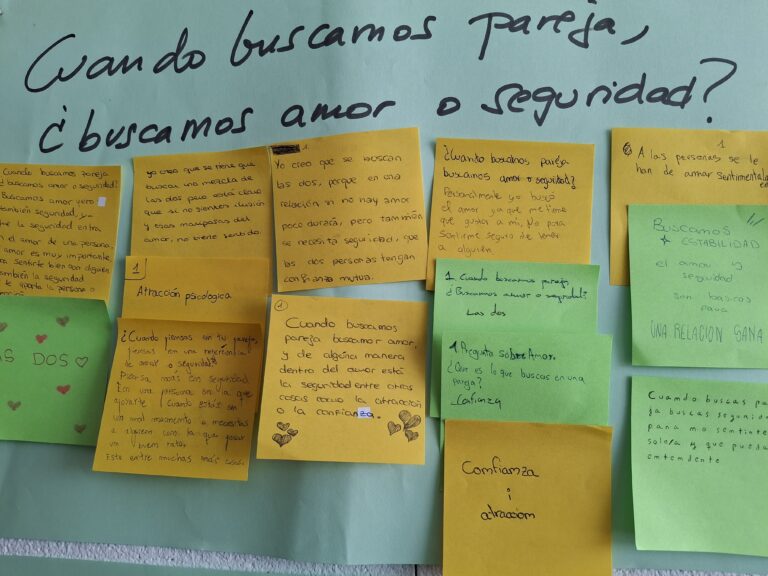 Cuando buscamos pareja,
¿buscamos amor o seguridad?
Cuando buscamos pareja
¿buscamos amor o seguridad?
Buscamos amor pero
también seguridad, ya
la seguridad entra
el amor de una persona,
amor es muy importante
sentirte bien con alguien
también la seguridad
te aporta la persona o
AS DOS
yo creo que se tiene que
buscar una mezcla de
las dos pero está claro
que si no sientes ilusión
y esas mariposas del
amor, no tiene sentido.
1
Atracción psicologica
¿Cuando piensas en tu pareja,
piensas en una referencia
de amor o seguridad?
Piensa más en seguridad.
Es una persona en la que
apoyarte cuando estás en
un mal momento o necesitas
a alguien con la que pasar
un buen rato.
Este entre muchas más cosas
1.
Yo creo que se buscan
las dos, porque en una
relación si no hay amor
poco durará, pero tambíen
se necesita seguridad, que
las dos personas tengan
confianza mutua.
1
Cuando buscamos
pareja buscamos amor,
y de alguna manera
dentro del amor está
la seguridad entre otras
cosas como la atracción
o la confianza.
¿Cuando buscamos pareja
buscamos amor o seguridad?
Personalmente yo busco
el amor ya que me tiene
que gustar a mí, No para
sentirme seguro de tener
a alguien.
1. Cuando buscamos pareja
¿Buscamos amor o seguridad?
Las dos
1 Pregunta sobre Amor.
¿Que es lo que buscas en una
pareja?
Confianza
Comfianza
i
atraccion
1
A las personas se le
han de amar sentimental
Buscamos
ESTABILIDAD
el amor y
seguridad
son basicos
para
UNA RELACION SANA
Cuando buscas pa
ja buscas segurida
para no sentirte
solo/a y que pueda
entenderte